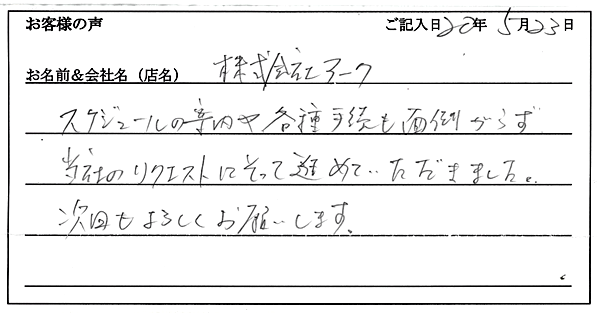 お客様の声 ご記入日20年5月23日
お名前&会社名（店名） 株式会社アーク
スケジュールの案内や各種手続も面倒がらず
当社のリクエストにそって進めていただきました。
次回もよろしくお願いします。